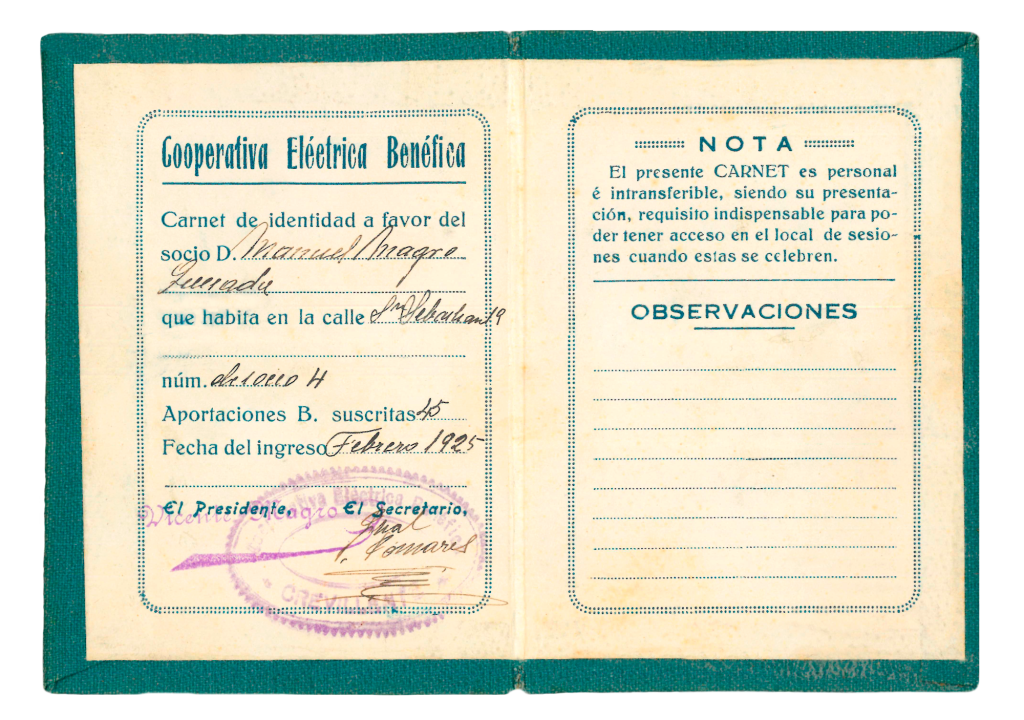 Cooperativa Eléctrica Benéfica
Carnet de identidad a favor del
socio D. Manuel Magro
Quesada
que habita en la calle Sn Sebastian 19
núm. de socio 4
Aportaciones B. suscritas 45
Fecha del ingreso Febrero 1925
El Presidente, El Secretario,
Vicente Magro
Pomares
Eléctrica
CREVILLANTE
NOTA
El presente CARNET es personal
é intransferible, siendo su presenta-
ción, requisito indispensable para po-
der tener acceso en el local de sesio-
nes cuando estas se celebren.
OBSERVACIONES